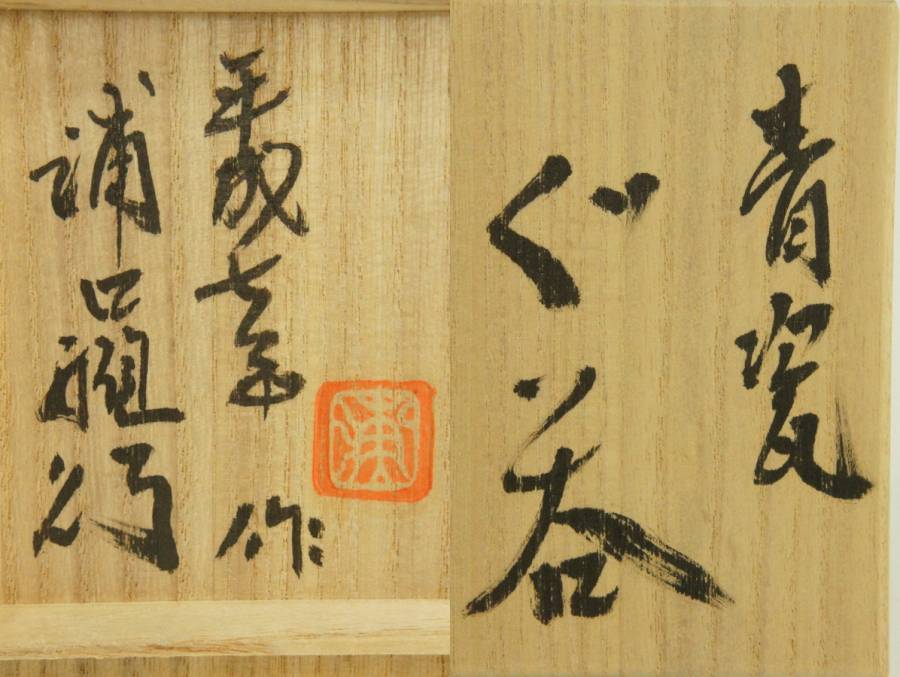 青瓷
ぐい呑
平成七年 作
浦口雅行